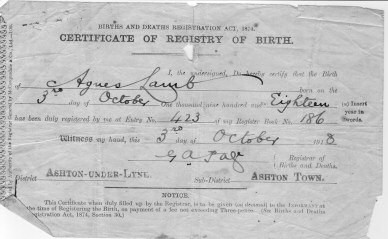 BIRTHS AND DEATHS REGISTRATION ACT, 1874.
CERTIFICATE OF REGISTRY OF BIRTH.
I, the undersigned, Do hereby certify that the Birth
of Agnes Lamb born on the
3rd day of October One thousand nine hundred and Eighteen (a) Insert year in words.
has been duly registered by me at Entry No. 423 of my Register Book No. 186
Witness my hand, this 3rd day of October 1918
G A Page Registrar of Births and Deaths.
District ASHTON-UNDER-LYNE Sub-District ASHTON TOWN.
NOTICE.
This Certificate when duly filled up by the Registrar, is to be given (on demand) to the INFORMANT at
the time of Registering the Birth, on payment of a fee not exceeding Three-pence. (See Births and Deaths
Registration Act, 1874, Section 30.)